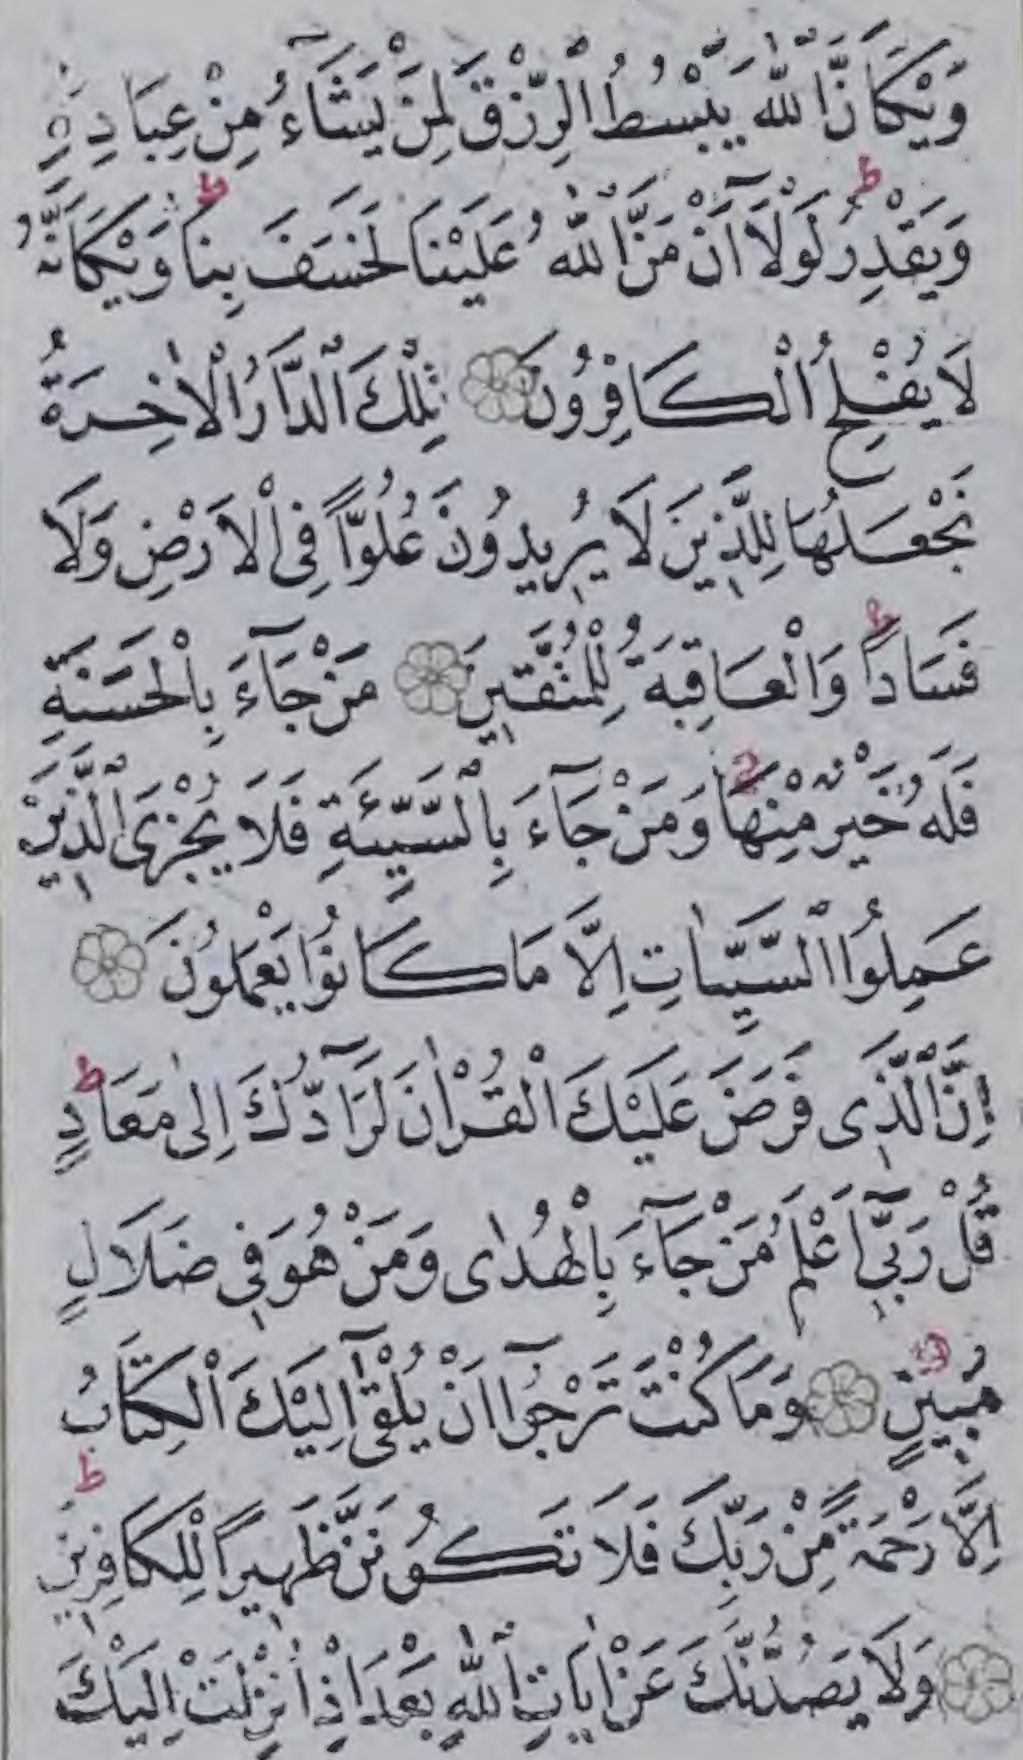 وَيْكَاَنَّ اللّٰهَ يَبْسُطُ الرِّزْقَ لِمَنْ يَشَٓاءُ مِنْ عِبَادِه۪
وَيَقْدِرُۚ لَوْلَٓا اَنْ مَنَّ اللّٰهُ عَلَيْنَا لَخَسَفَ بِنَاۜ وَيْكَاَنَّهُ
لَا يُفْلِحُ الْكَافِرُونَ تِلْكَ الدَّارُ الْاٰخِرَةُ
نَجْعَلُهَا لِلَّذ۪ينَ لَا يُر۪يدُونَ عُلُوًّا فِى الْاَرْضِ وَلَا
فَسَادًاۜ وَالْعَاقِبَةُ لِلْمُتَّق۪ينَ مَنْ جَٓاءَ بِالْحَسَنَةِ
فَلَهُ خَيْرٌ مِنْهَاۚ وَمَنْ جَٓاءَ بِالسَّيِّئَةِ فَلَا يُجْزَى الَّذ۪ينَ
عَمِلُوا السَّيِّـَٔاتِ اِلَّا مَا كَانُوا يَعْمَلُونَ
اِنَّ الَّذ۪ى فَرَضَ عَلَيْكَ الْقُرْاٰنَ لَرَٓادُّكَ اِلٰى مَعَادٍۜ
قُلْ رَبّ۪ٓى اَعْلَمُ مَنْ جَٓاءَ بِالْهُدٰى وَمَنْ هُوَ ف۪ى ضَلَالٍ
مُب۪ينٍ وَمَا كُنْتَ تَرْجُٓوا اَنْ يُلْقٰٓى اِلَيْكَ الْكِتَابُ
اِلَّا رَحْمَةً مِنْ رَبِّكَ فَلَا تَكُونَنَّ ظَه۪يرًا لِلْكَافِر۪ينَۜ
وَلَا يَصُدُّنَّكَ عَنْ اٰيَاتِ اللّٰهِ بَعْدَ اِذْ اُنْزِلَتْ اِلَيْكَ